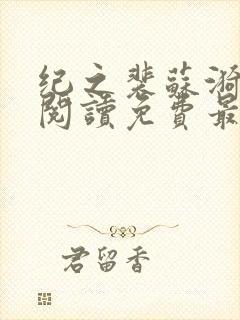 纪之裴蘇漪
閱讀免費最
君留香